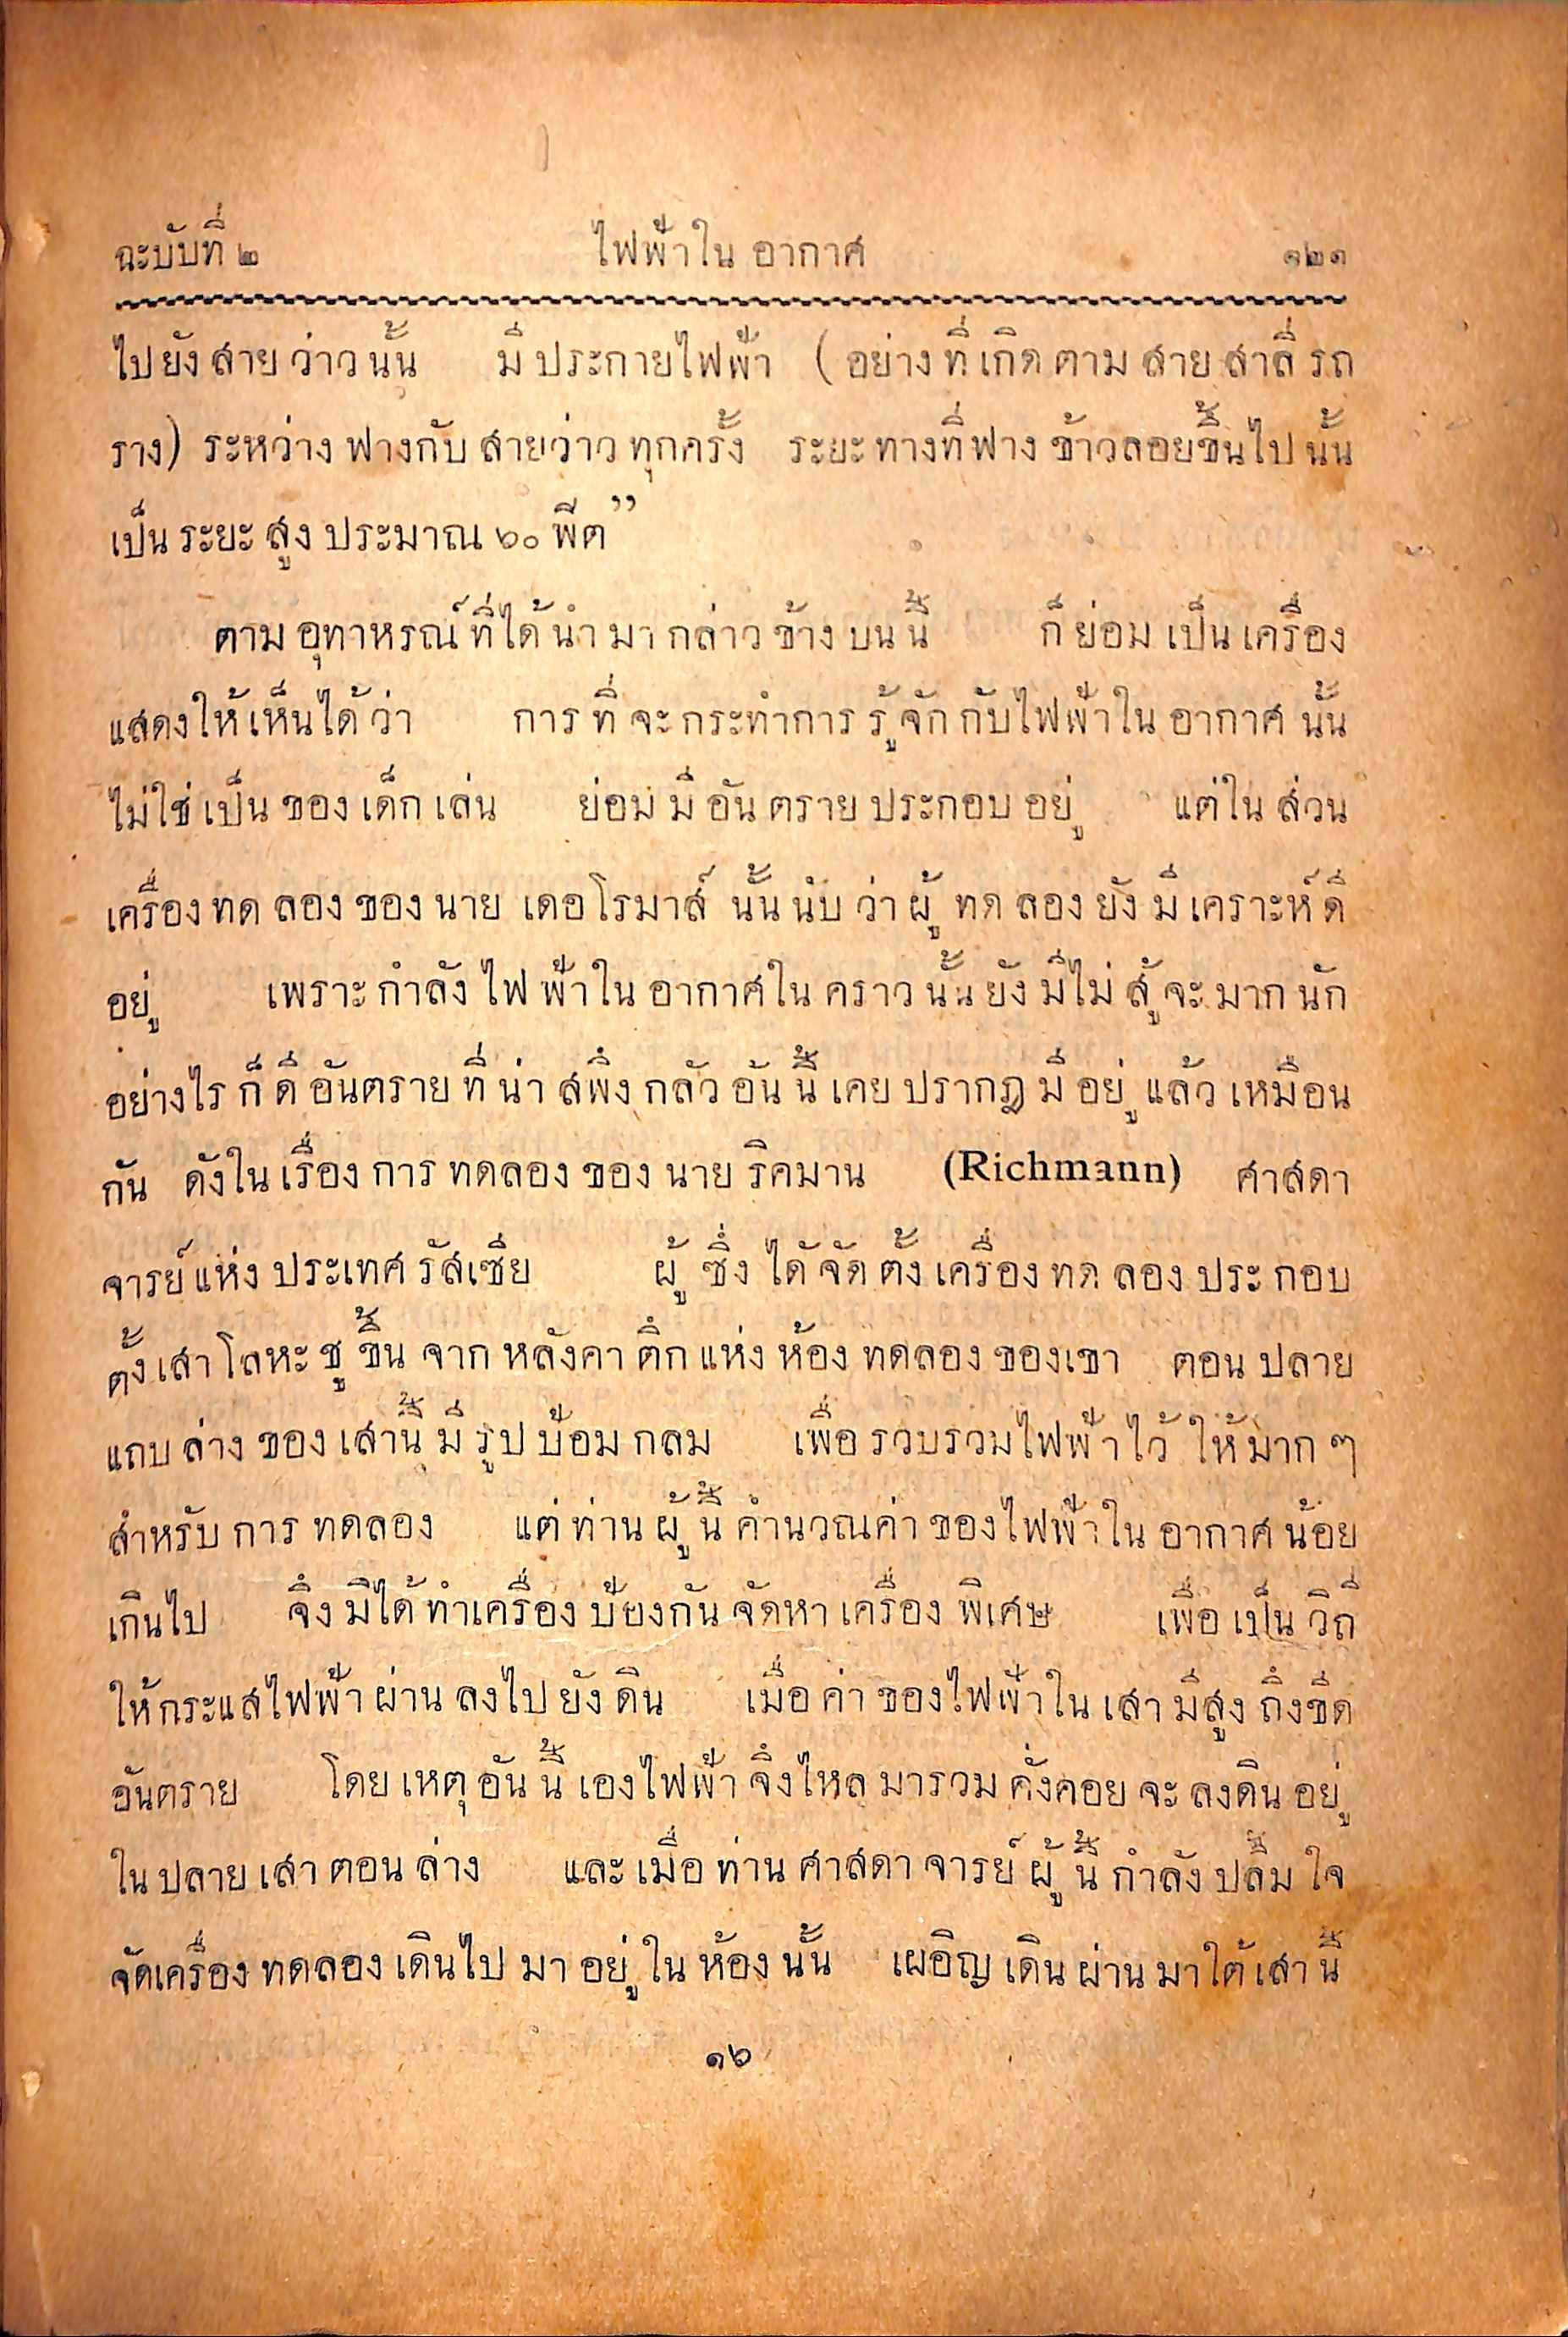 ฉะบับที่ ๒ ไฟฟ้าใน อากาศ ๑๒๑
ไปยังสายว่าวนั้น มีประกายไฟฟ้า (อย่างที่เกิดตามสายสาลี่รถ
ราง) ระหว่างฟางกับสายว่าวทุกครั้ง ระยะทางที่ฟางข้าวลอยขึ้นไปนั้น
เป็นระยะสูงประมาณ ๖๐ ฟีต”
ตามอุทาหรณ์ที่ได้นำมากล่าวข้างบนนี้ ก็ย่อมเป็นเครื่อง
แสดงให้เห็นได้ว่า การที่จะกระทำการรู้จักกับไฟฟ้าในอากาศนั้น
ไม่ใช่เป็นของเด็กเล่น ย่อมมีอันตรายประกอบอยู่ แต่ในส่วน
เครื่องทดลองของนายเดอโรมาส์ นั้นนับว่าผู้ทดลองยังมีเคราะห์ดี
อยู่ เพราะกำลังไฟฟ้าในอากาศในคราวนั้นยังมีไม่สู้จะมากนัก
อย่างไรก็ดีอันตรายที่น่าสพึงกลัวอันนี้เคยปรากฎมีอยู่แล้วเหมือน
กัน ดังในเรื่องการทดลองของนายริคมาน (Richmann) ศาสดา
จารย์แห่งประเทศรัสเซีย ผู้ซึ่งได้จัดตั้งเครื่องทดลองประกอบ
ตั้งเสาโลหะชูขึ้นจากหลังคาตึกแห่งห้องทดลองของเขา ตอนปลาย
แถบล่างของเสานี้มีรูปป้อมกลม เพื่อรวบรวมไฟฟ้าไว้ให้มาก ๆ
สำหรับการทดลอง แต่ท่านผู้นี้คำนวณค่าของไฟฟ้าในอากาศน้อย
เกินไป จึงมิได้ทำเครื่องป้องกันจัดหาเครื่องพิเศษ เพื่อเป็นวิถี
ให้กระแสไฟฟ้าผ่านลงไปยังดิน เมื่อค่าของไฟฟ้าในเสามีสูงถึงขีด
อันตราย โดยเหตุอันนี้เองไฟฟ้าจึงไหลมารวมคั่งคอยจะลงดินอยู่
ในปลายเสาตอนล่าง และเมื่อท่านศาสดาจารย์ผู้นี้กำลังปลื้มใจ
จัดเครื่องทดลองเดินไปมาอยู่ในห้องนั้น เผอิญเดินผ่านมาใต้เสานี้
๑๖